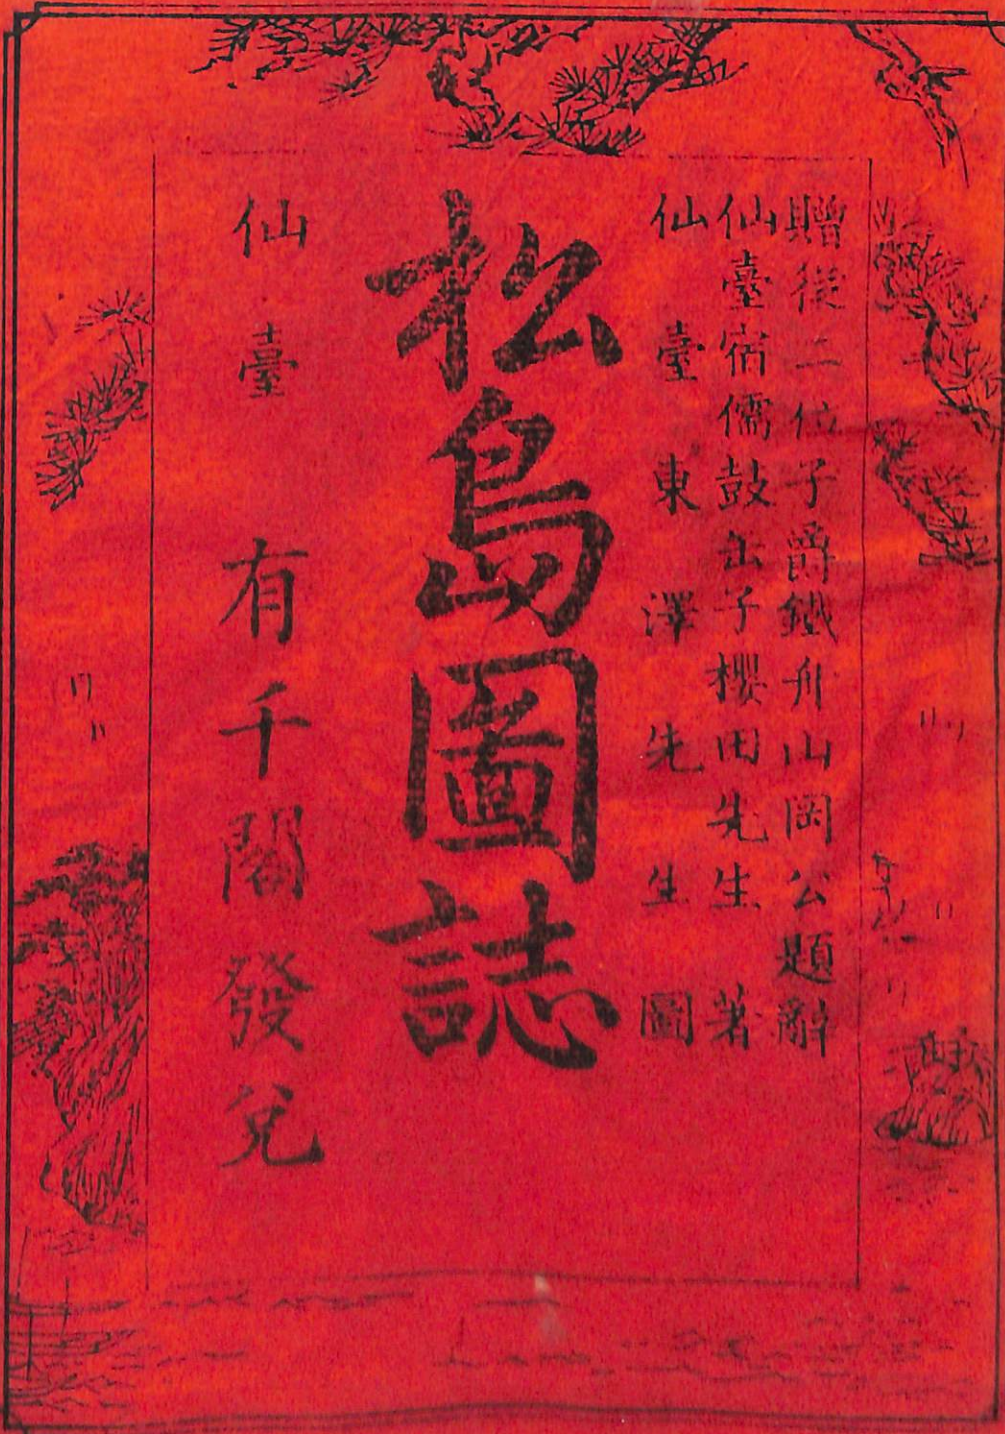 贈從二位子爵鐵舟山岡公題辭
仙臺宿儒鼓缶子櫻田先生著
仙臺東澤先生圖
松島圖誌
仙臺 有千閣發兌